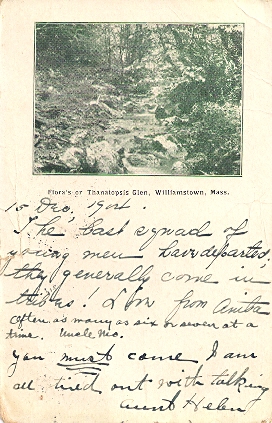 Flora's or Thanatopsis Glen, Williamstown, Mass.
15 Dec, 1904.
The last squad of
young men have departed,
they generally come in
tribes! Love from Anita
often as many as six or seven at a
time. Uncle Mo.
You must come I am
all tired out with talking
Aunt Helen